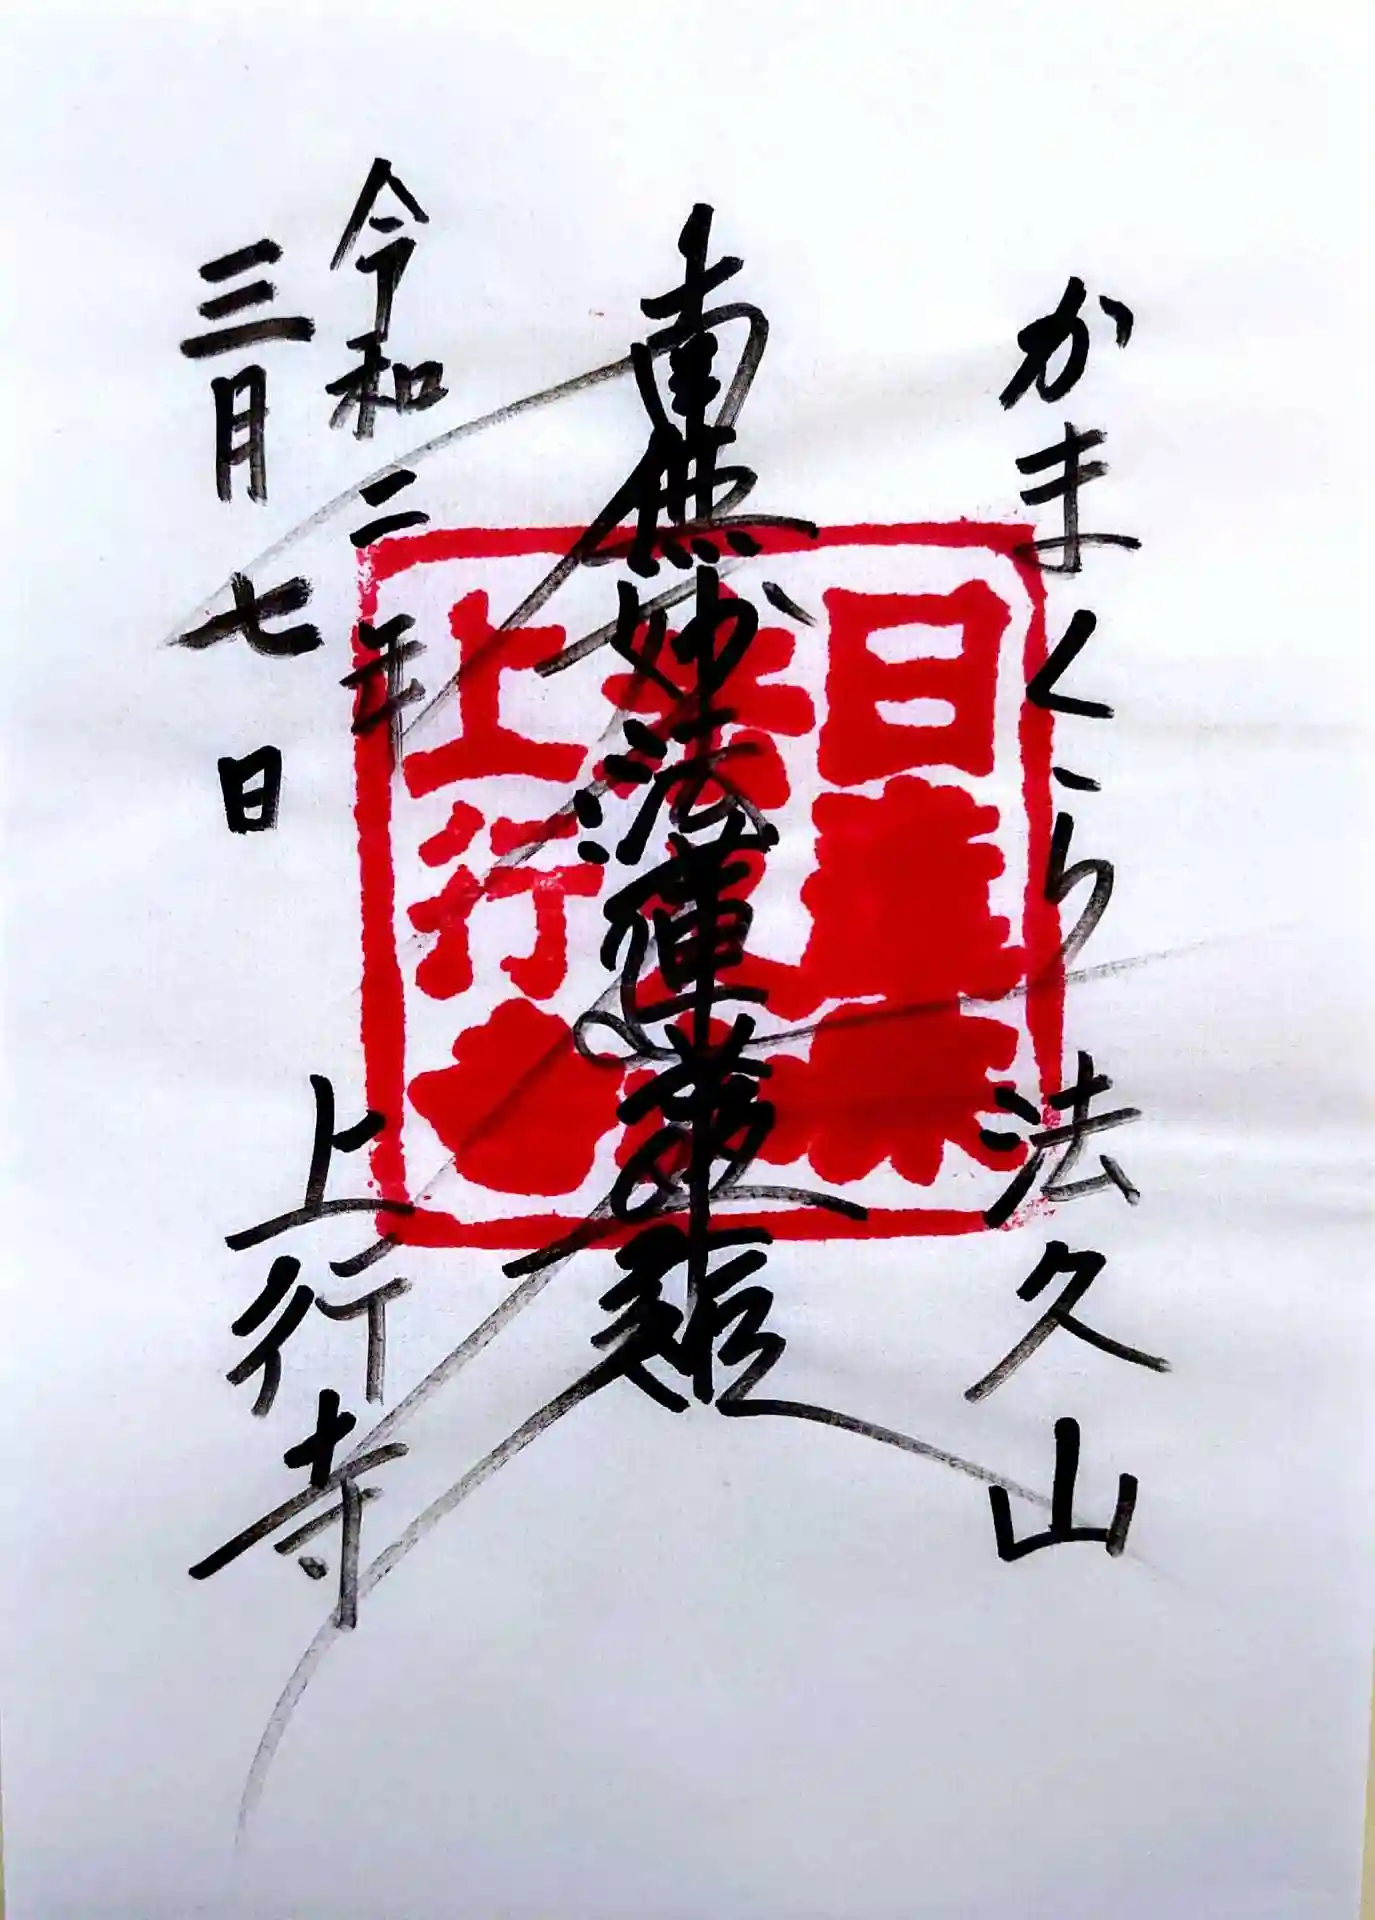 かまくら 法久山
南無妙法蓮華経
令和二年
三月七日
上行寺
日
上行